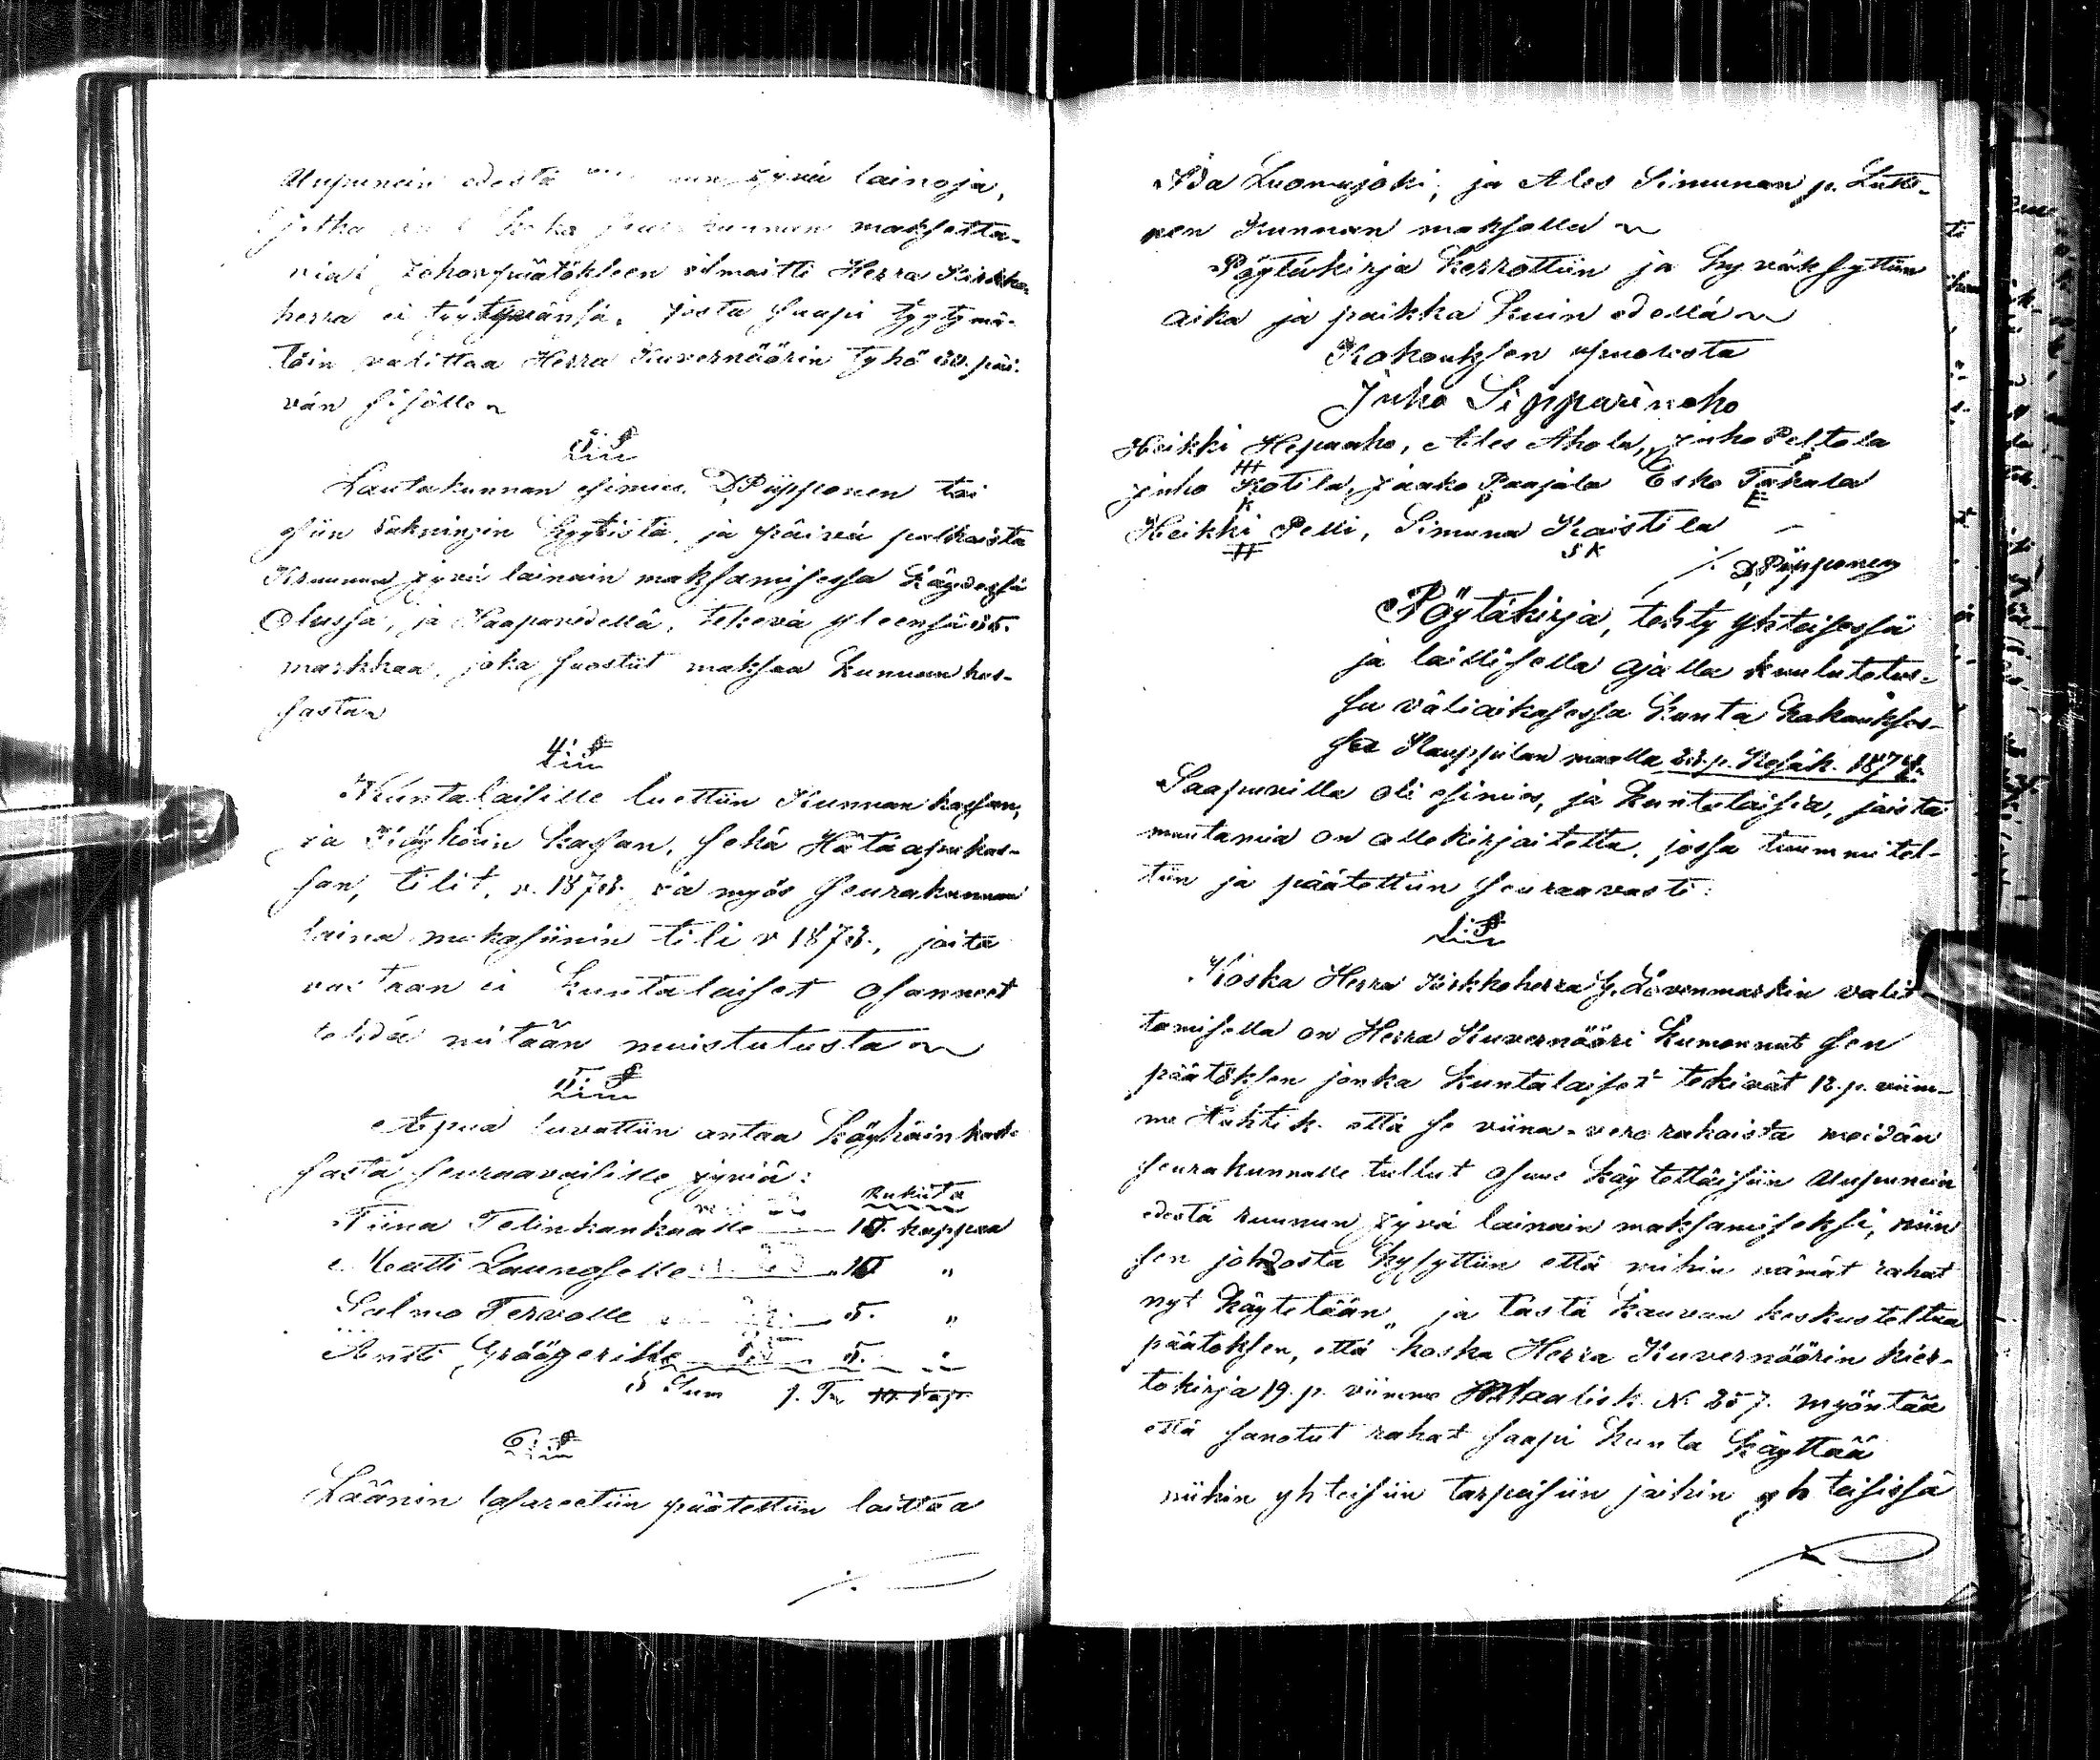 Alupunein edestä jyvä lainoja,
jotka koko seurakunnan maksetta-
viat, johon päätökseen ilmoitti Herra Kirkko-
herra ei tyytyvänsä. josta saapi tyytymä-
töin valittaa Herra Kuvernöörin tyhö 30. päi-
vän sisälle
3:§
Lautakunnan esimies D Piipponen toi
esiin räkningin kyytistä, ja päivä palkoista
Kruunun jyvä lainain maksamisessa käydessä
Olussa, ja Haapavedellä, tekevä yleensä 35.
markkaa, joka suostut maksaa kunnan kas-
sasta
4:§
Kuntalaisille luettiin Kunnan kassan,
ja Köyhöin kassan, sekä Hätäapukas-
san, tilit, v. 1873. ja myös seurakunnan
laina makasiinin tili v 1873., joita
vastaan ei kuntalaiset osanneet
tehdä mitään muistutusta
5:§
Apua luvattiin antaa Köyhäin kas-
sasta seuraavaisille jyviä:
Rukiita
Tiina Telinkankaalle 10 kappaa
Matti Launoselle 10 "
Salmo Tervolle 5. "
Antti Gröögerille 5. "
Sum 1. Tr 10. kap.
6:§
Läänin lasareetiin päätettiin laittaa
Ida Luomajoki, ja Ales Simunan p. Lukk-
nen kunnan maksolla
Pöytäkirja kerrottiin ja hyväksyttiin
aika ja paikka kuin edellä
Kokouksen puolesta
Juho Sipparinaho
Heikki Hepoaho, Ales Ahola, Juho Peltola
HH P
Juho Kotila, Jaako Paajala Esko Takala
K P E
Heikki Pelli, Simuna Kaistila
H SK
D Piipponen
Pöytäkirja, tehty yhteisessä
ja laillisella ajalla kuulutetus-
sa väliaikasessa kunta kokoukses-
sa Kauppilan maalla 23. p. Kesäk. 1874.
Saapuvilla oli esimies, ja kuntalaisia, joista
muutamia on allekirjoitettu, jossa tuummitel-
tiin ja päätettiin seuraavasti:
1:§
Koska Herra Kirkkoherra J. Lövenmarkin valit-
tamisella on Herra Kuvernööri kumonnut sen
päätöksen jonka kuntalaiset tekivät 12. p. viim-
me Huhtik. että se viina-vero rahoista meidän
seurakunnalle tullut osuus käytettäisiin Alupunein
edestä ruunun jyvä lainain maksamiseksi, niin
sen johdosta kysyttiin että mihin nämät rahat
nyt käytetään, ja tästä kauvan keskusteltua
päätöksen, että koska Herra Kuvernöörin kier-
tokirja 19. p. viimme Maalisk. N. 257. myöntää
että sanotut rahat saapi kunta käyttää
niihin yhteisiin tarpeisiin joihin yhteisissä